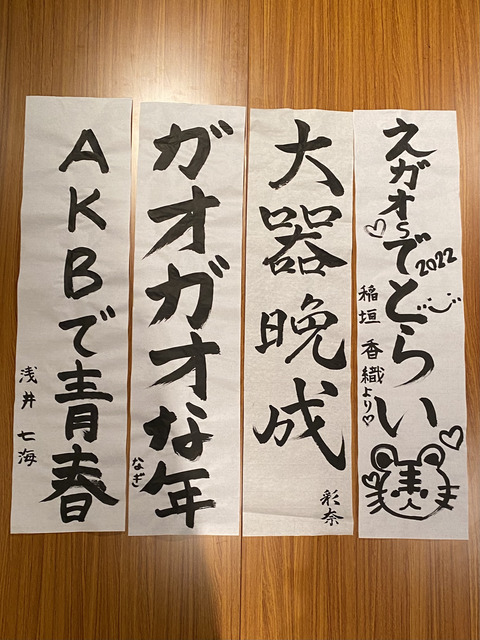 えガオsでとらい
2022
稲垣 香織より
大器晩成
彩奈
ガオガオな年
なぎ
AKBで青春
浅井 七海